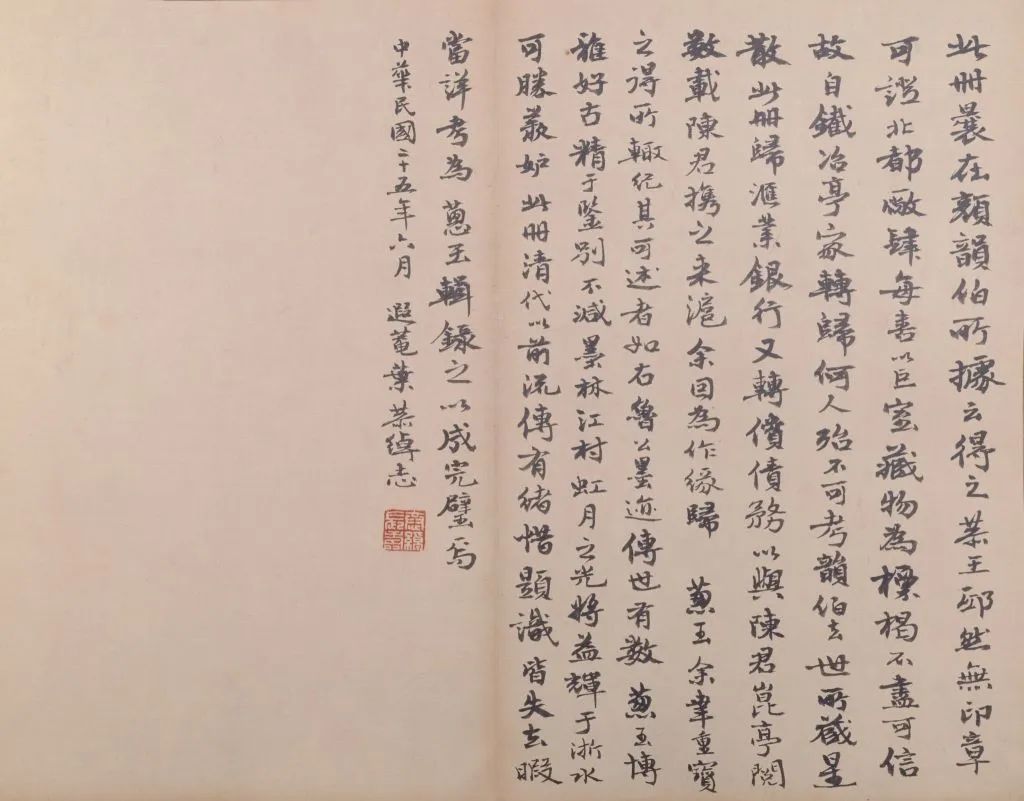 此冊曩在顏韻伯所據云得之恭王邸然無印章
可證北都廠肆每喜以巨室藏物為標楬不盡可信
故自鐵冶亭家轉歸何人殆不可考韻伯去世所藏星
散此冊歸滙業銀行又轉償債務以與陳君崑亭閱
數載陳君攜之來滬余因為作緣歸 蔥玉余幸重寶
之得所輙紀其可述者如右魯公墨迹傳世有數蔥玉博
雅好古精于鑒別不減墨林江村虹月之光將益輝于浙水
可勝蘉妒此冊清代以前流傳有緒惜題識皆失去暇
當詳考為蔥玉輯錄之以成完璧焉
中華民國二十五年六月 遐菴葉恭綽志